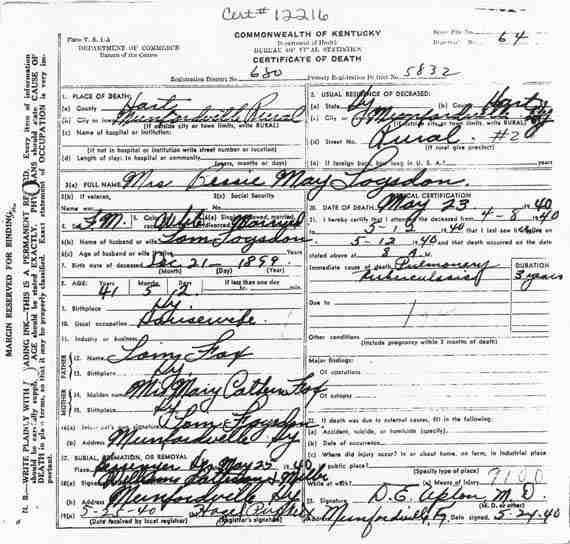 Cert # 12216
Form V. S. 1-A
DEPARTMENT OF COMMERCE
Bureau of the Census
COMMONWEALTH OF KENTUCKY
Department of Health
BUREAU OF VITAL STATISTICS
CERTIFICATE OF DEATH
State File No.
Registrar's No. 64
Registration District No. 680
Primary Registration District No. 5832
MARGIN RESERVED FOR BINDING
1. PLACE OF DEATH:
(a) County Hart
(b) City or town Munfordville Rural
(If outside city or town limits, write RURAL)
(c) Name of hospital or institution:
(If not in hospital or institution write street number or location)
(d) Length of stay: In hospital or community
(years, months or days)
2. USUAL RESIDENCE OF DECEASED:
(a) State Ky (b) County Hart
(c) City or town Munfordville Ky
(If outside city or town limits, write RURAL)
(d) Street No. Rural #2
(If rural give precinct)
(e) If foreign born, how long in U. S. A.? years
3(a) FULL NAME Mrs Bessie May Logsdon
3(b) If veteran,
Name war
3(c) Social Security
No.
F.M. White Married
6(b) Name of husband or wife Tom Logsdon
6(c) Age of husband or wife
7. Birth date of deceased Dec 21 - 1899
(Month) (Day) (Year)
8. AGE: Years Months Days If less than one day
41 5 2 hr. min.
9. Birthplace Ky
10. Usual occupation Housewife
11. Industry or business
FATHER
12. Name Tom Fox
13. Birthplace Ky
MOTHER
14. Maiden name Mrs Mary Fox
15. Birthplace Ky
16(a) Informant's own signature Tom Logsdon
(b) Address Munfordville Ky
17. BURIAL, CREMATION, OR REMOVAL
Place Ky May 25 1940
18(a) Signature
(b) Address Munfordville Ky
19(a) 5-25-40
(Date received by local registrar) (Registrar's signature)
MEDICAL CERTIFICATION
20. DATE OF DEATH May 23 1940
21. I hereby certify that I attended the deceased from 4-8 1940
to 5-12 1940 that I last saw her alive on
5-12 1940 and that death occurred on the date
stated above at 8 A M.
Immediate cause of death Pulmonary
Tuberculosis
DURATION
3 years
Due to
Other conditions
(Include pregnancy within 3 months of death)
Major findings:
Of operations
Of autopsy
22. If death was due to external causes, fill in the following:
(a) Accident, suicide, or homicide (specify).
(b) Date of occurrence
(c) Where did injury occur? In or about home, on farm, in industrial place
public place?
(Specify type of place)
While at work? (e) Means of injury
23. Signature D. E. Upton M. D.
(M. D. or other)
Address Munfordville, Ky Date signed 5-24-40